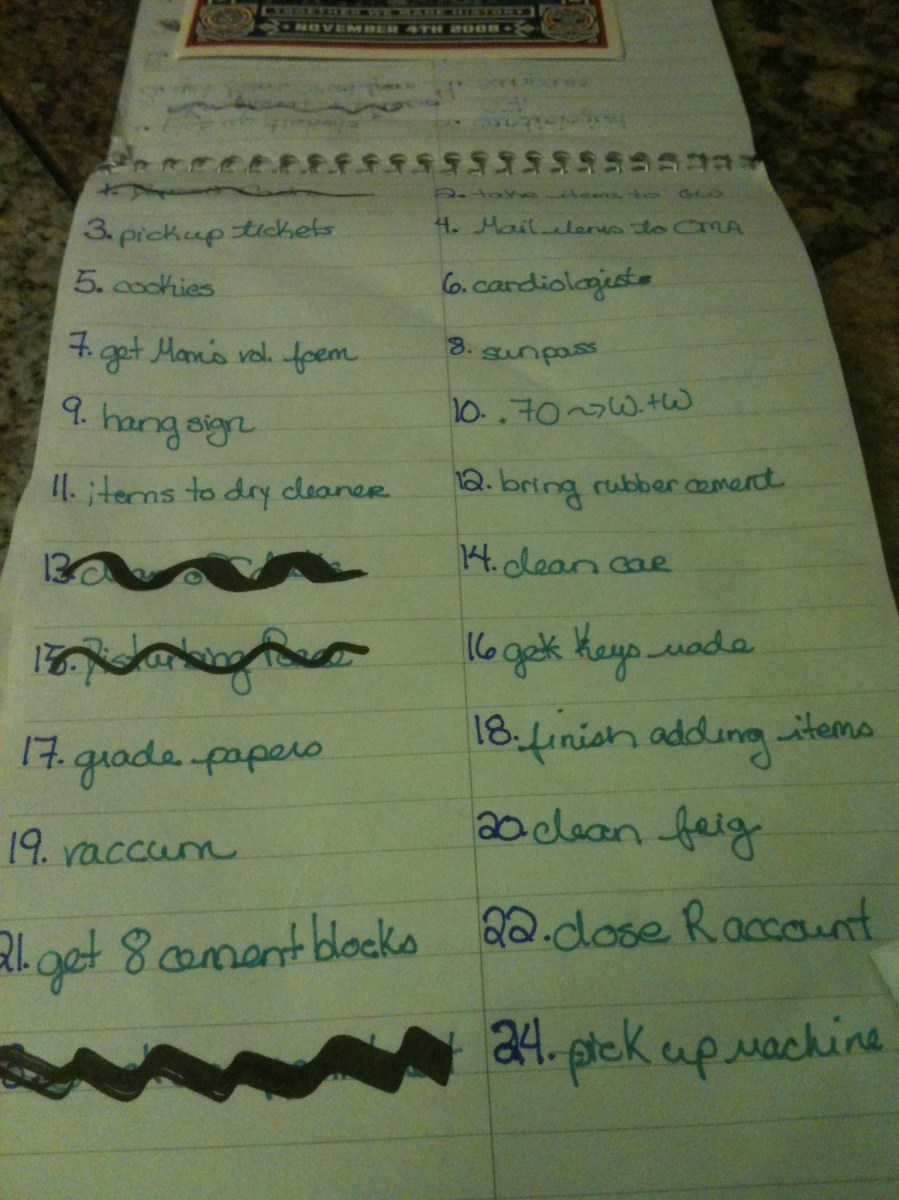 TOGETHER WE MADE HISTORY
NOVEMBER 4TH 2008
1.
2. take items to GW
3. pickup tickets
4. Mail items to CMA
5. cookies
6. cardiologist
7. get Mom's vol. form
8. sunpass
9. hang sign
10. .70 ~> W.+W
11. items to dry cleaner
12. bring rubber cement
13.
14. clean car
15. Disturbing Peace
16 get keys made
17. grade papers
18. finish adding items
19. vaccum
20. clean frig
21. get 8 cement blocks
22. close R account
24. pick up machine